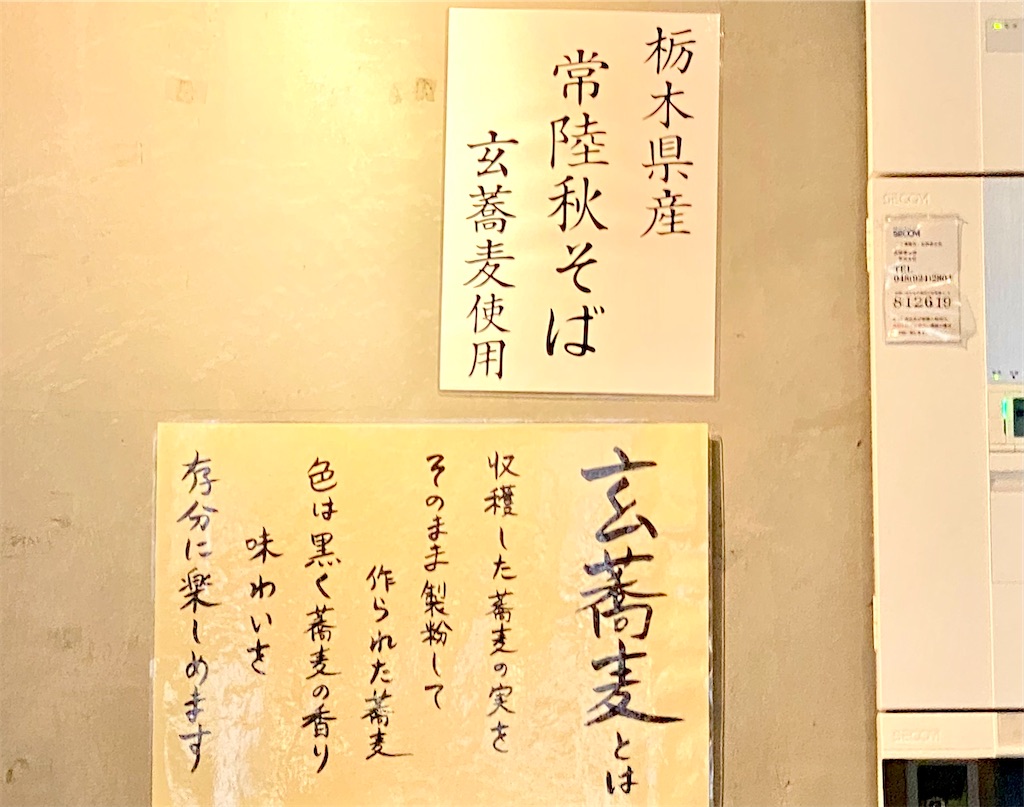 栃木県産
常陸秋そば
玄蕎麦使用
玄蕎麦とは
収穫した蕎麦の実を
そのまま製粉して
作られた蕎麦
色は黒く蕎麦の香り
味わいを
存分に楽しめます
SECOM
SECOM
TEL
812619
SECOM